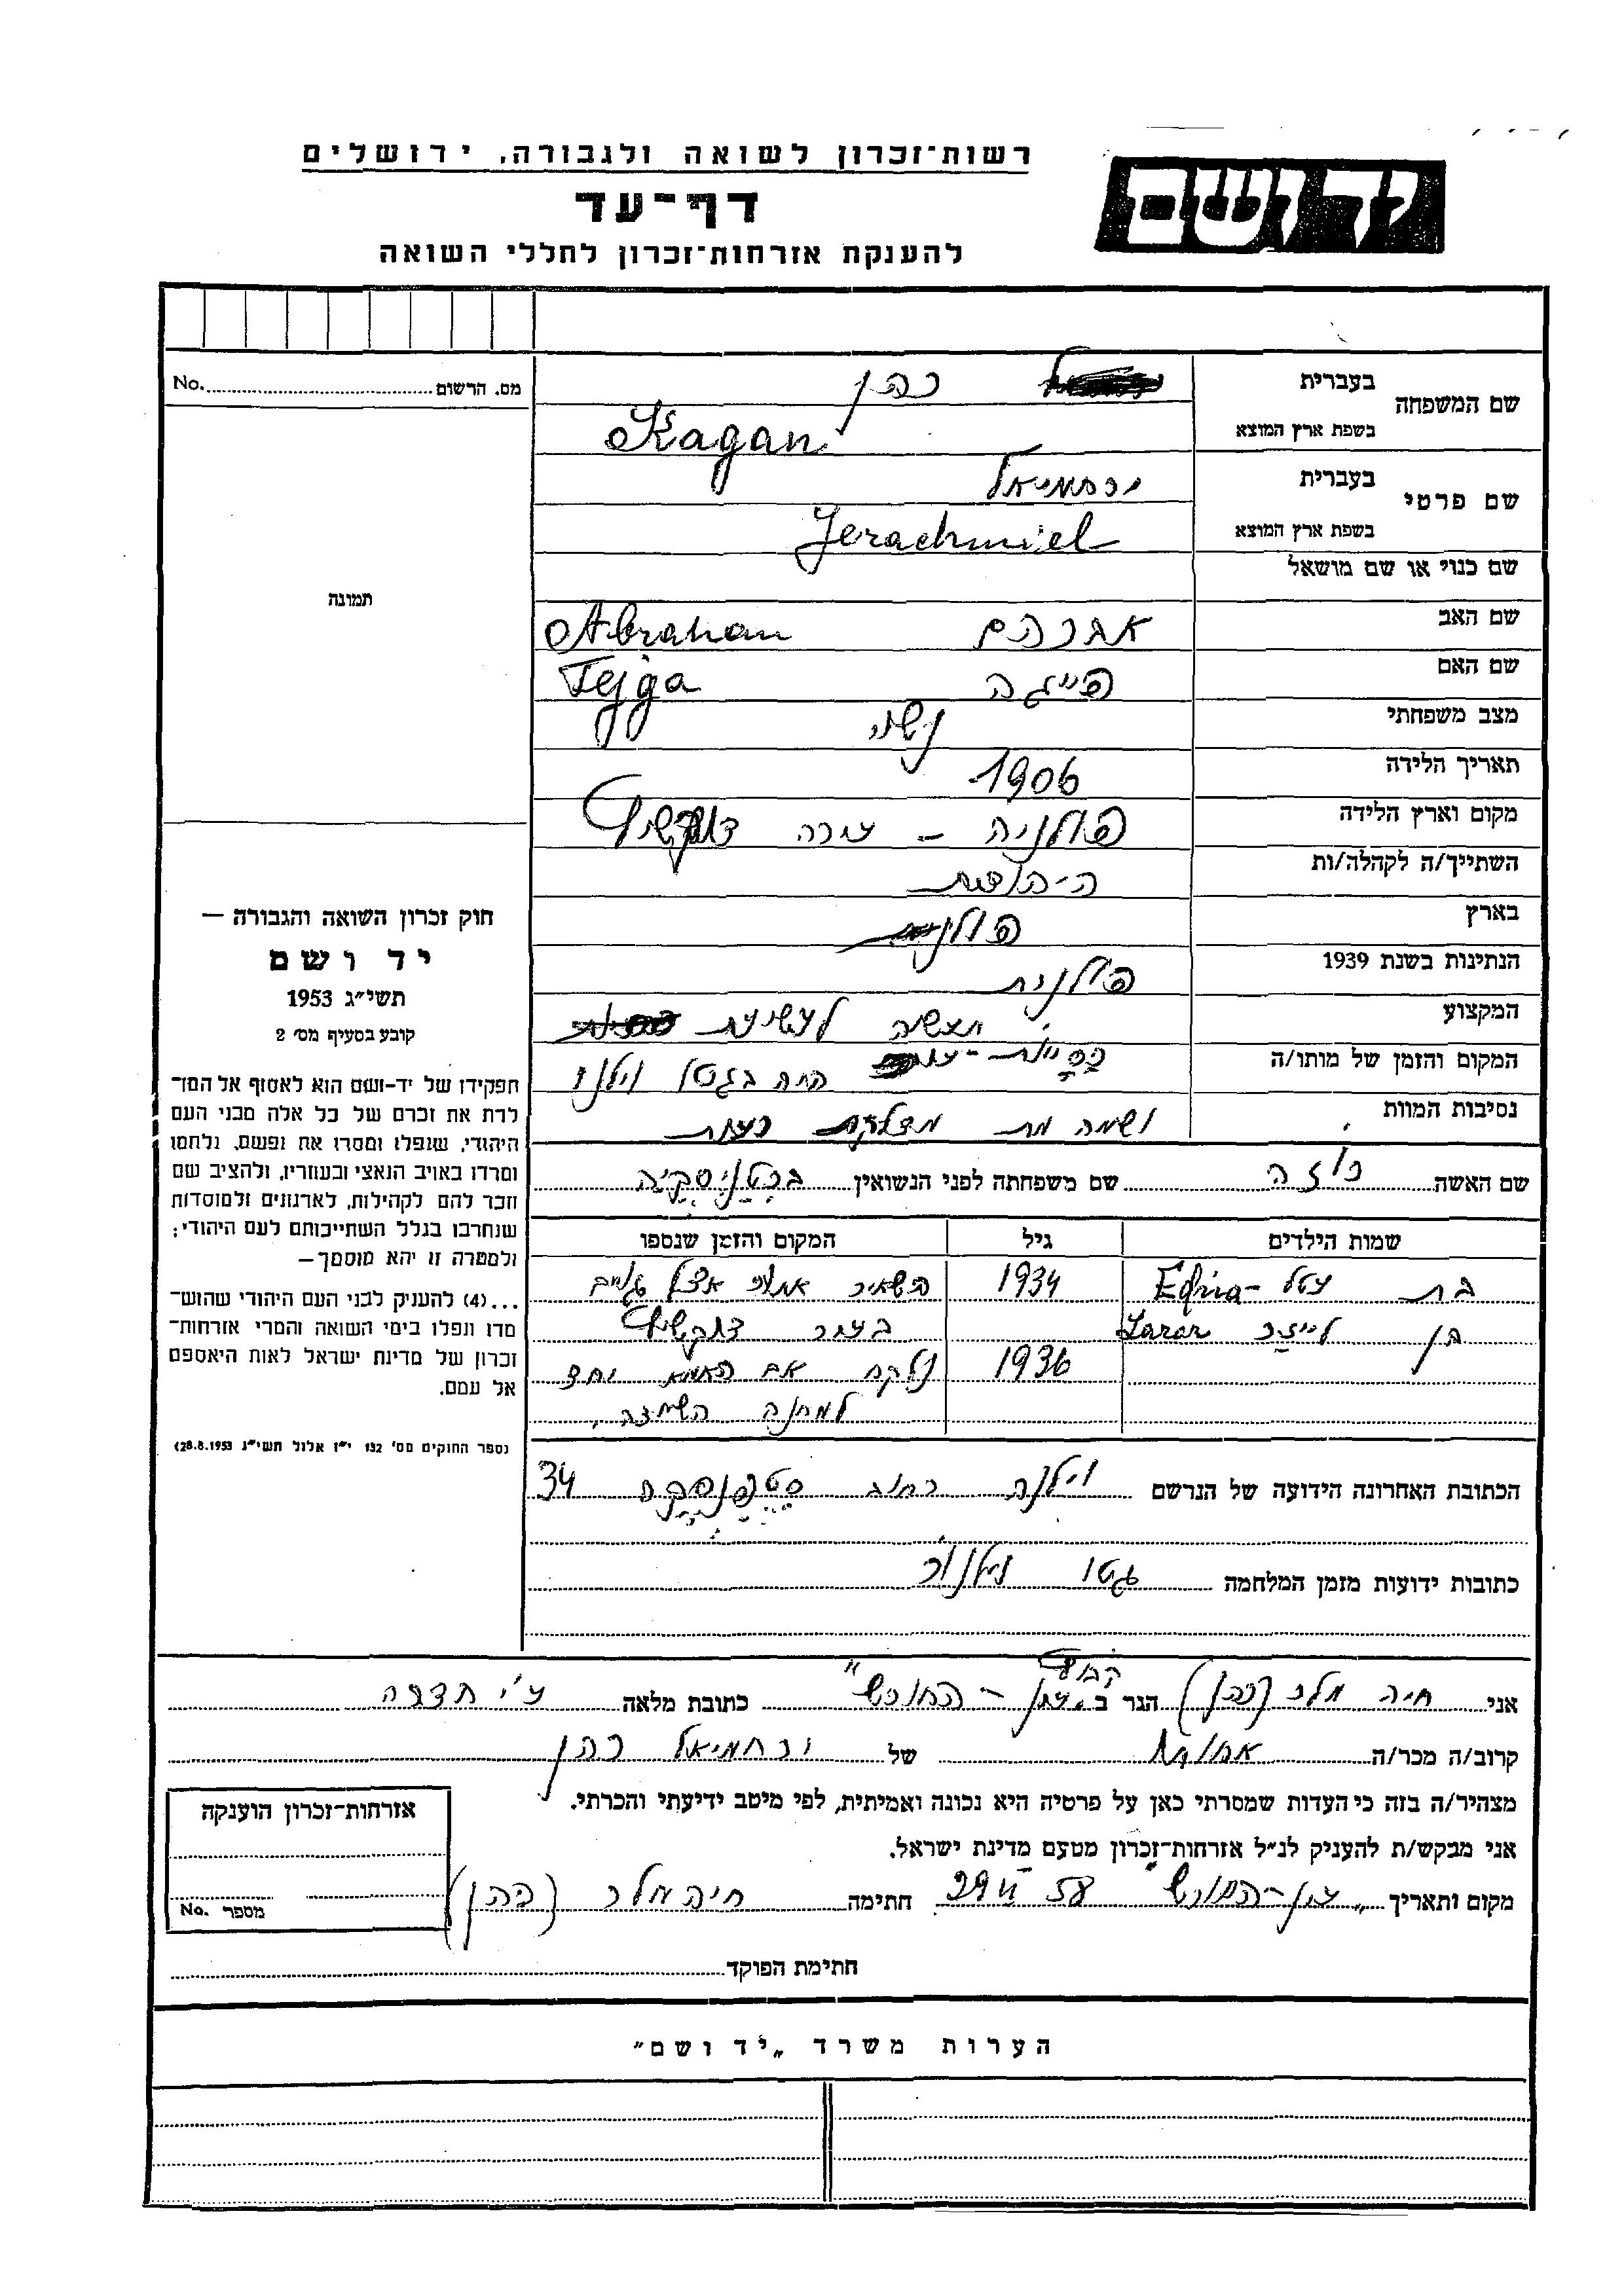 רשות־זכרון לשואה ולגבורה, ירושלים
יד ושם
דף־עד
להענקת אזרחות־זכרון לחללי השואה
מס. הרשום No.
תמונה
חוק זכרון השואה והגבורה —
יד ושם
תשי״ג 1953
קובע בסעיף מס׳ 2
תפקידו של יד-ושם הוא לאסוף אל המו־
לדת את זכרם של כל אלה מבני העם
היהודי, שנפלו ומסרו את נפשם, נלחמו
ומרדו באויב הנאצי ובעוזריו, ולהציב שם
וזכר להם לקהילות, לארגונים ולמוסדות
שנחרבו בגלל השתייכותם לעם היהודי;
ולמטרה זו יהא מוסמך—
...(4) להענקת לבני העם היהודי שהוש־
מדו ונפלו בימי השואה והמרי אזרחות־
זכרון של מדינת ישראל לאות היאספם
אל עמם.
(נספר החוקים מס׳ 132 י״ז אלול תשי״ג 28.8.1953)
שם המשפחה בעברית כהן
בשפת ארץ המוצא Kagan
שם פרטי בעברית ירחמיאל
בשפת ארץ המוצא Jerachmiel
שם כנוי או שם מושאל
שם האב אברהם Abraham
שם האם פייגה Fejga
מצב משפחתי נשוי
תאריך הלידה 1906
מקום וארץ הלידה פולניה –
השתייך/ה לקהלה/ות היהודית
בארץ
הנתינות בשנת 1939 פולנית
המקצוע תעשיה לעשיית
המקום והזמן של מותו/ה היה בגטו וילנו
נסיבות המוות ושמה מת
שם האשה רוזה שם משפחתה לפני הנשואין
שמות הילדים גיל המקום והזמן שנספו
בת 1934 השאירו אותה אצל גויים
בן לייזר Lazar בעיר
1936 נלקח עם האמא
למחנה השמדה.
הכתובת האחרונה הידועה של הנרשם וילנה רחוב 34
כתובות ידועות מזמן המלחמה גטו
אני חיה מלר (כהן) הגר ב קבוץ "עין-החורש" כתובת מלאה ע״י חדרה
קרוב/ה מכר/ה אחותו של ירחמיאל כהן
מצהיר/ה בזה כי העדות שמסרתי כאן על פרטיה היא נכונה ואמיתית, לפי מיטב ידיעתי והכרתי.
אני מבקש/ת להעניק לנ״ל אזרחות־זכרון מטעם מדינת ישראל.
מקום ותאריך "עין-החורש" חתימה חיה מלר (כהן)
אזרחות־זכרון הוענקה
מספר No.
חתימת הפוקד
הערות משרד „יד ושם״